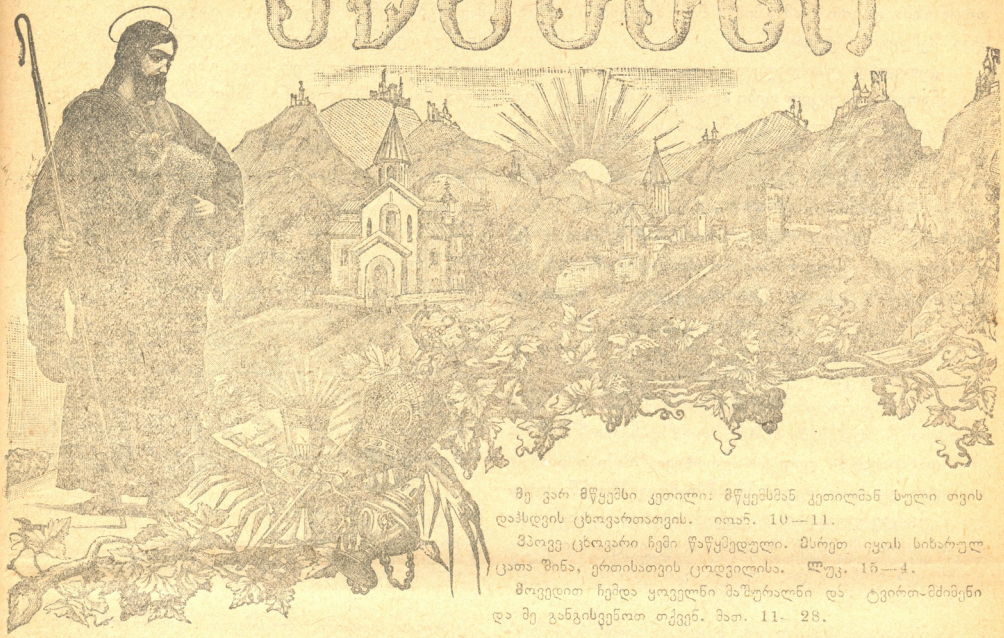 მწყემსი
მე ვარ მწყემსი კეთილი: მწყემსმან კეთილმან სული თვის
დაჰსდვის ცხოვართათვის. იოან. 10—11.
ვჰპოვე ცხოვარი ჩემი წაწყმედული. ესრეთ იყოს სიხარულ
ცათა შინა, ერთისათვის ცოდვილისა. ლუკ. 15—4.
მოვედით ჩემდა ყოველნი მაშურალნი და ტვირთ-მძიმენი
და მე განგისვენოთ თქვენ. მათ. 11- 28.